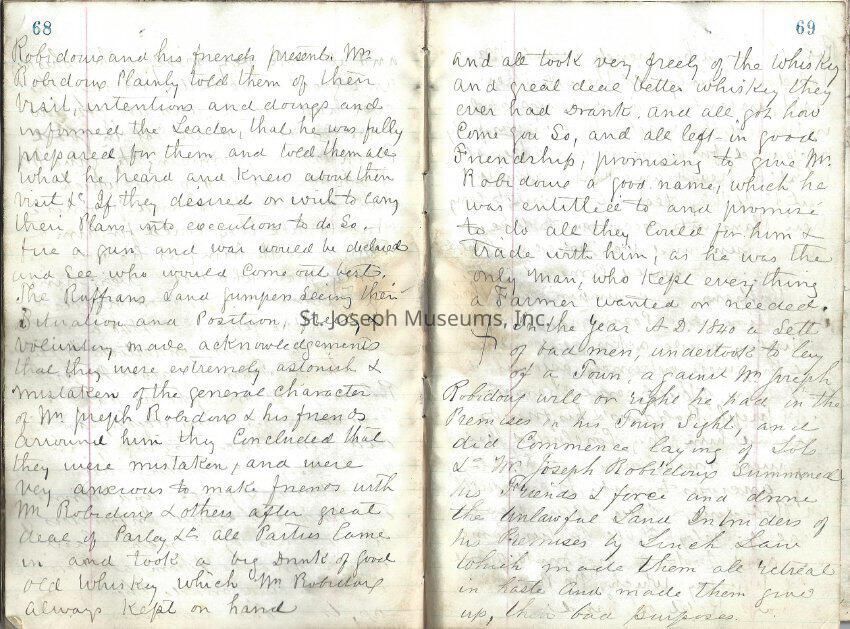 68
Robidoux and his friends present. Mr.
Robidoux Plainly told them of their
Visit, intentions and doings and
informed the Leader, that he was fully
prepared for them and told them all
what he heard and Knew about their
visit &c. If they desired or wish to carry
their Plans, into executions to do So.
fire a gun and war would be declared
and See who would Come out best.
The Ruffians Land Jumpers Seeing their
Situation and Position,
voluntary made acknowledgements
that they were extremely astonish &
mistaken of the general character
of Mr. Joseph Robidoux & his friends
arround him they Concluded that
they were mistaken, and were
very anxious to make friends with
Mr Robidoux & others after great
deal of Parley &c all Parties Came
in and took a big Drink of good
old Whiskey which Mr Robidoux
always Kept on hand
69
and all took very freely of the whiskey
and great deal better whiskey they
ever had Drank. and all got how
Come you So, and all left in good
Friendship, promising to give Mr.
Robidoux a good name, which he
was entitled to and promise
to do all they Could for him &
Trade with him, as he was the
only man, who Kept everything
a Farmer wanted or needed.
In the year A.D. 1840 a Sett
of bad men, undertook to lay
of a Town, against Mr Joseph
Robidoux will or right he had in the
Premises on his Town Sight, and
did Commence laying of Lots
&c Mr. Joseph Robidoux Summoned
his Friends & force and drove
the unlawful Land Intruders of
his Premises by Linch Law
which made them all retreat
in haste and made them give
up, their bad purposes.
St. Joseph Museums, Inc.